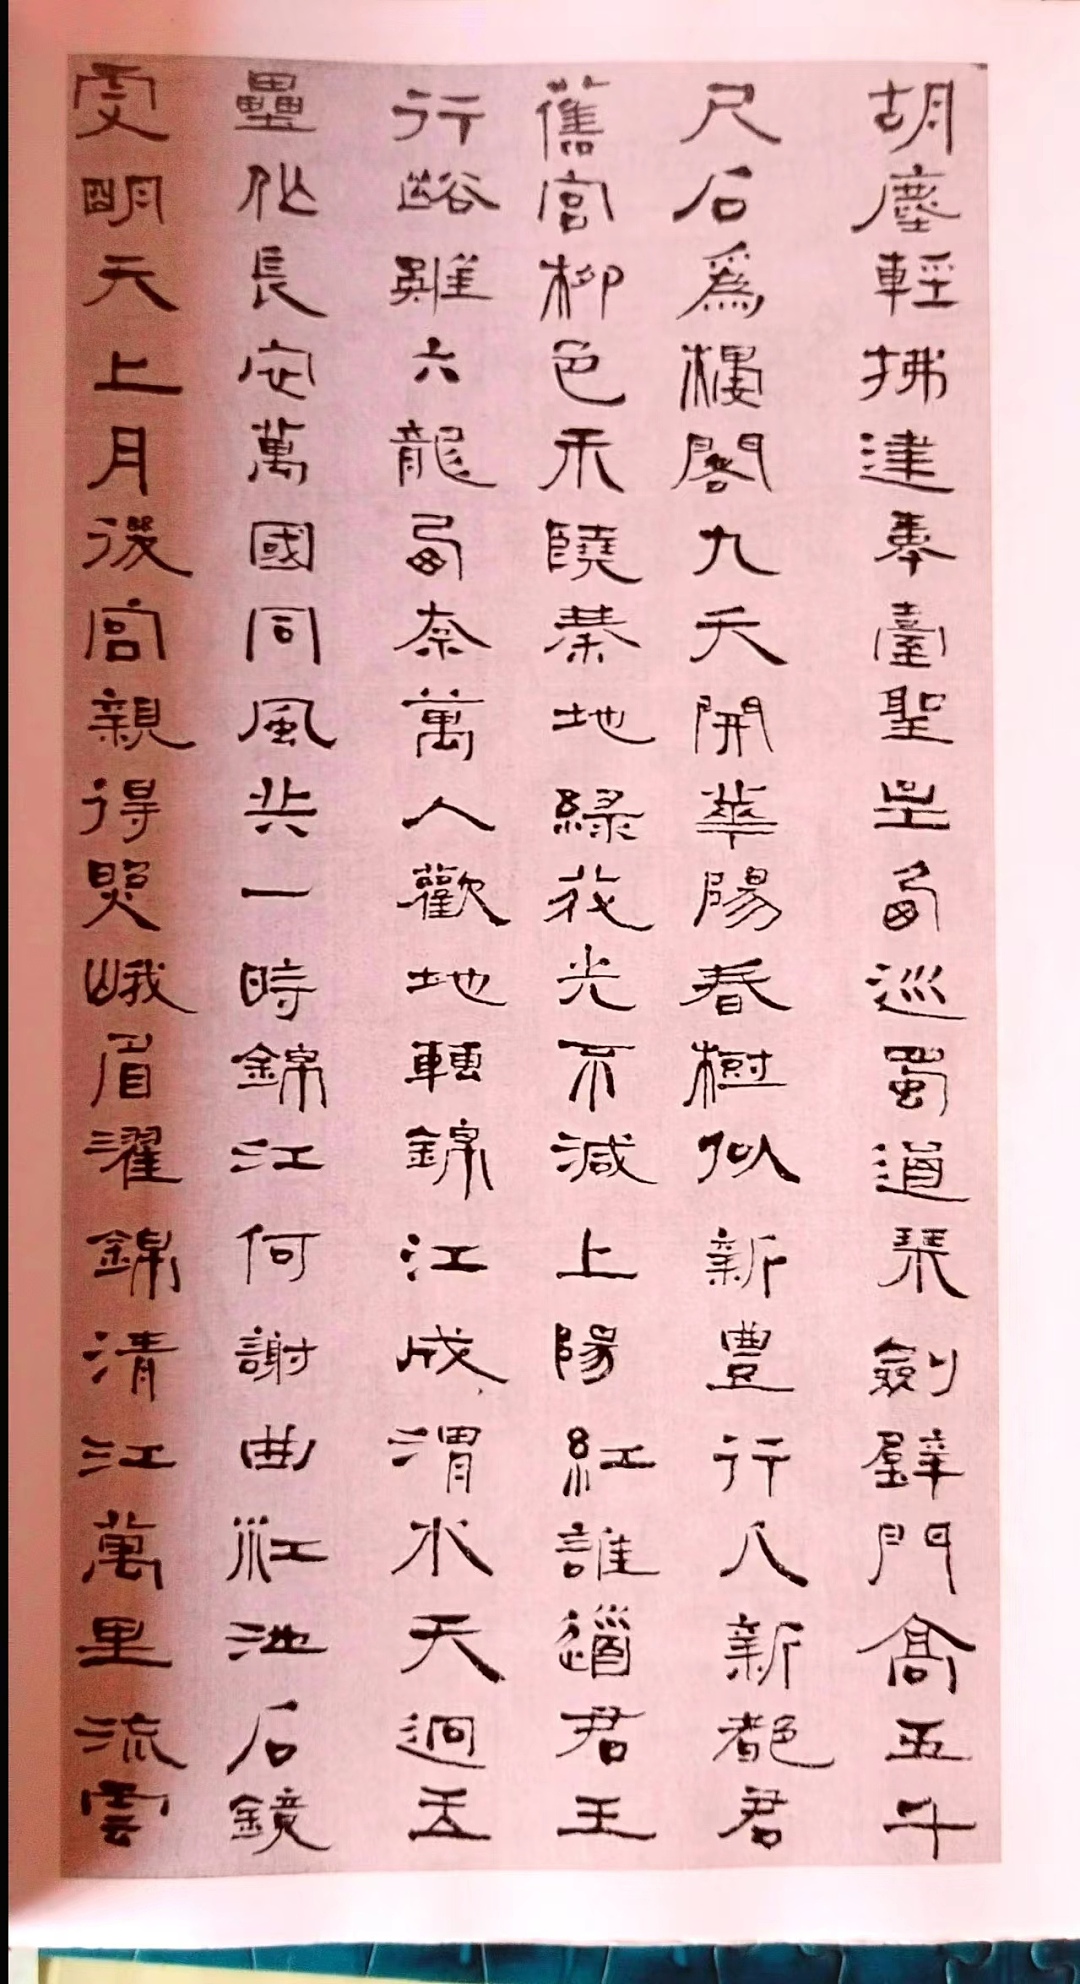 胡塵輕拂建章臺聖主西巡蜀道來劍壁門高五千
尺石為樓閣九天開華陽春樹似新豐行入新都若
舊宮柳色未饒秦地綠花光不減上陽紅誰道君王
行路難六龍西幸萬人歡地轉錦江成渭水天迴玉
壘作長安萬國同風共一時錦江何謝曲江池石鏡
更明天上月後宮親得照峨眉濯錦清江萬里流雲